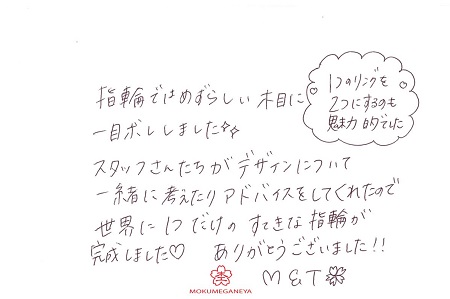 指輪ではめずらしい木目に
一目ボレしました☆☆
1つのリングを
2つにするのも
魅力的でした
スタッフさんたちがデザインについて
一緒に考えたりアドバイスをしてくれたので
世界に1つだけのすてきな指輪が
完成しました♡ ありがとうございました!!
M & T
MOKUMEGANEYA